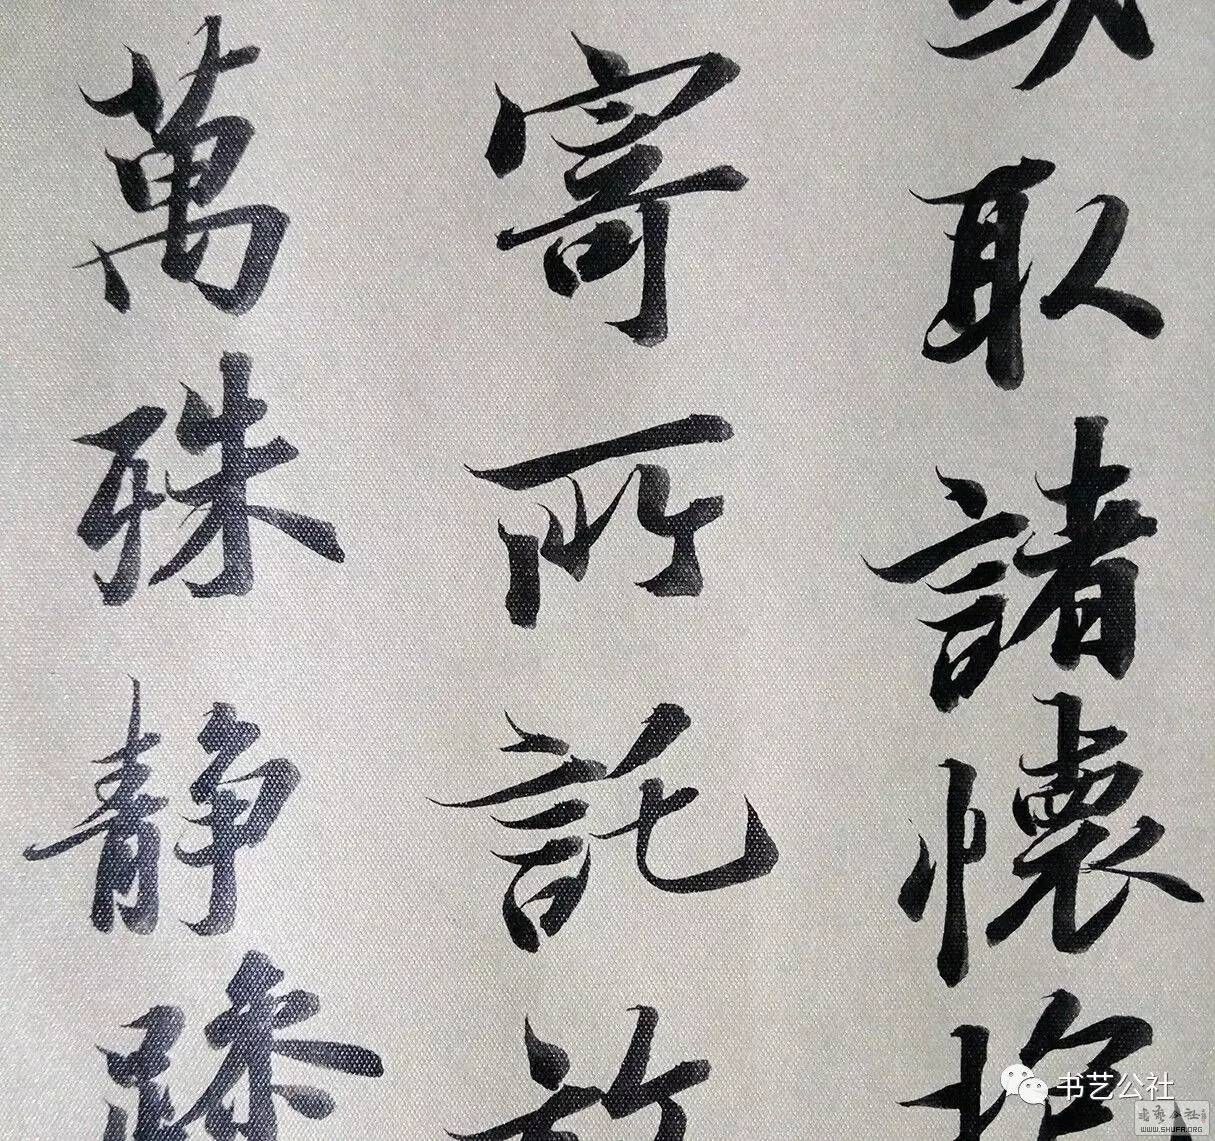 取諸懷抱
寄所託放
萬殊静躁
书艺公社
书艺公社
WWW.SHUFA.ORG